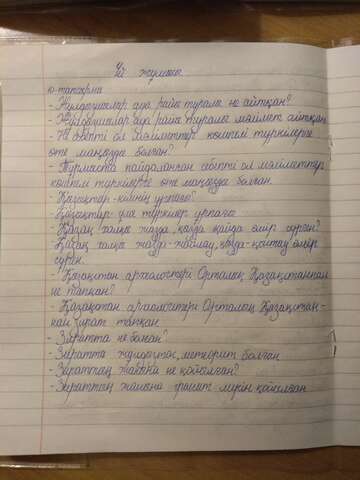 Үй жұмысы
10-тапсырма
- Жұлдызшылар ауа райы туралы не айтқан?
- Жұлдызшылар ауа райы туралы мәлімет айтқан.
- Не себепті ол мәліметтер көшпелі түркілерге
өте маңызды болған?
- Тұрмыста пайдаланған себепті ол мәліметтер
көшпелі түркілерге өте маңызды болған.
- Қазақтар кімнің ұрпағы?
- Қазақтар ұлы түркілер ұрпағы
- Қазақ халқы жазда, қыста қайда өмір сүрген?
- Қазақ халқы жазда-жайлау, қыста-қыстау өмір
сүрген.
- Қазақстан археологтері Орталық Қазақстаннан
не тапқан?
- Қазақстан археологтері Орталық Қазақстан-
нан зират тапқан
- Зиратта не болған?
- Зиратта жұлдызтас, метеорит болған
- Зираттың жанына не қойылған?
- Зираттың жанына гранит мүсін қойылған